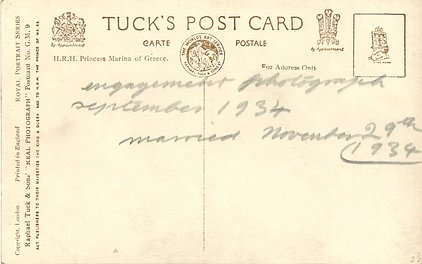 TUCK'S POST CARD
CARTE POSTALE
By Appointment
By Appointment
H.R.H. Princess Marina of Greece.
For Address Only
engagement photograph
september 1934
married November 29th
1934
ROYAL PORTRAIT SERIES
Printed in England
"REAL PHOTOGRAPH" Postcard No. C.M. 9
Copyright, London
Raphael Tuck & Sons'
ART PUBLISHERS TO THEIR MAJESTIES THE KING & QUEEN AND TO H.R.H. THE PRINCE OF WALES.